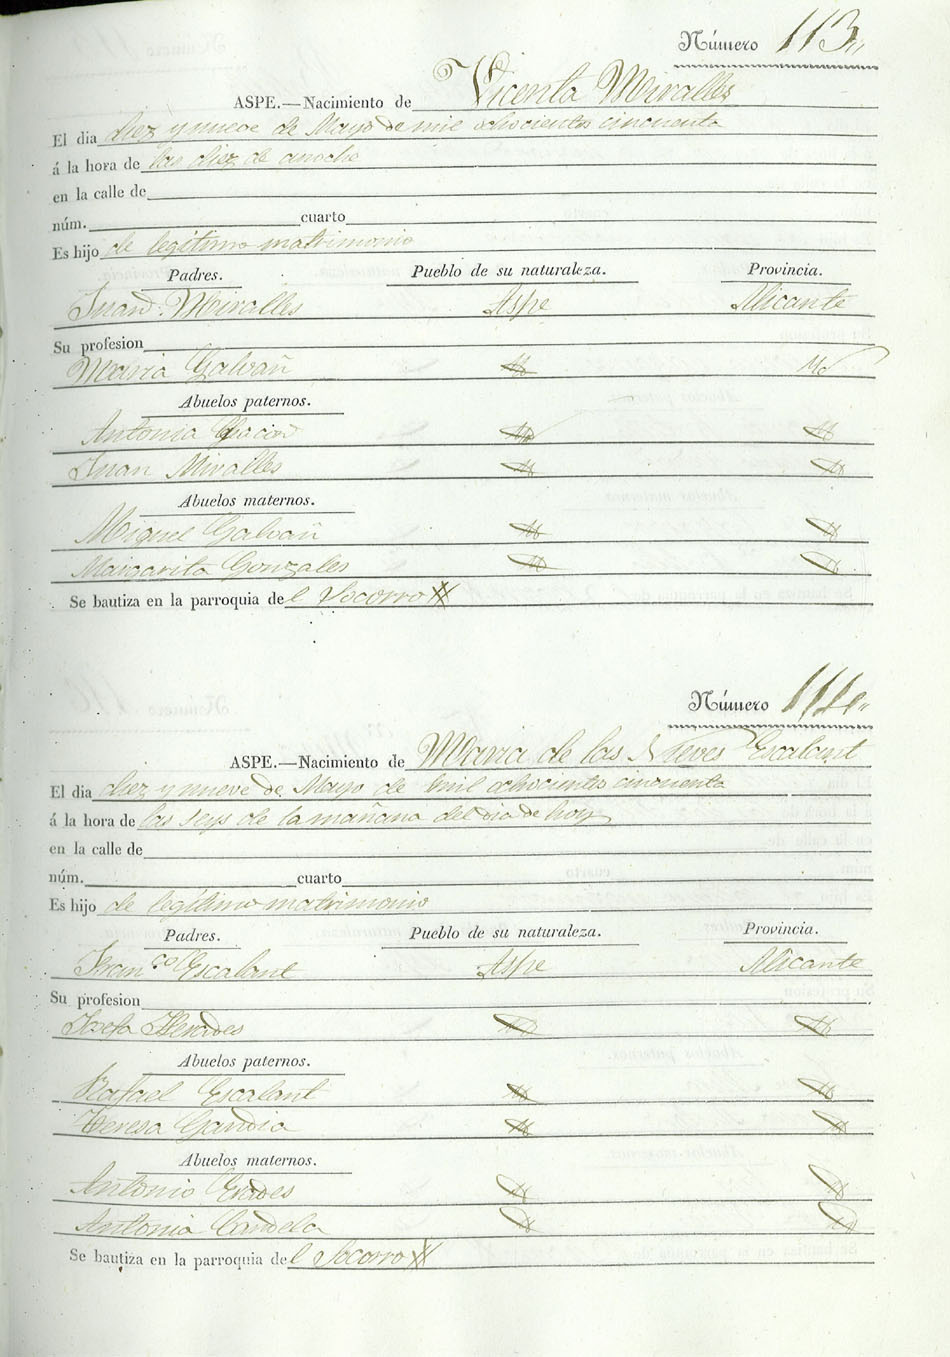 Número 113
ASPE.—Nacimiento de Vicenta Miralles
El dia diez y nueve de Mayo de mil ochocientos cincuenta
á la hora de las diez de anoche
en la calle de
núm. cuarto
Es hijo de legítimo matrimonio
Padres. Pueblo de su naturaleza. Provincia.
Juan Miralles Aspe Alicante
Su profesion
Maria Galvañ Id
Abuelos paternos.
Antonia
Juan Miralles
Abuelos maternos.
Miguel Galvañ
Margarita Gonzales
Se bautiza en la parroquia del Socorro
Número 114
ASPE.—Nacimiento de Maria de las Nieves Escalant
El dia diez y nueve de Mayo de mil ochocientos cincuenta
á la hora de las seys de la mañana del dia de hoy
en la calle de
núm. cuarto
Es hijo de legítimo matrimonio
Padres. Pueblo de su naturaleza. Provincia.
Franco Escalant Aspe Alicante
Su profesion
Josefa
Abuelos paternos.
Rafael Escalant
Teresa Gandia
Abuelos maternos.
Antonio
Antonia Candela
Se bautiza en la parroquia del Socorro